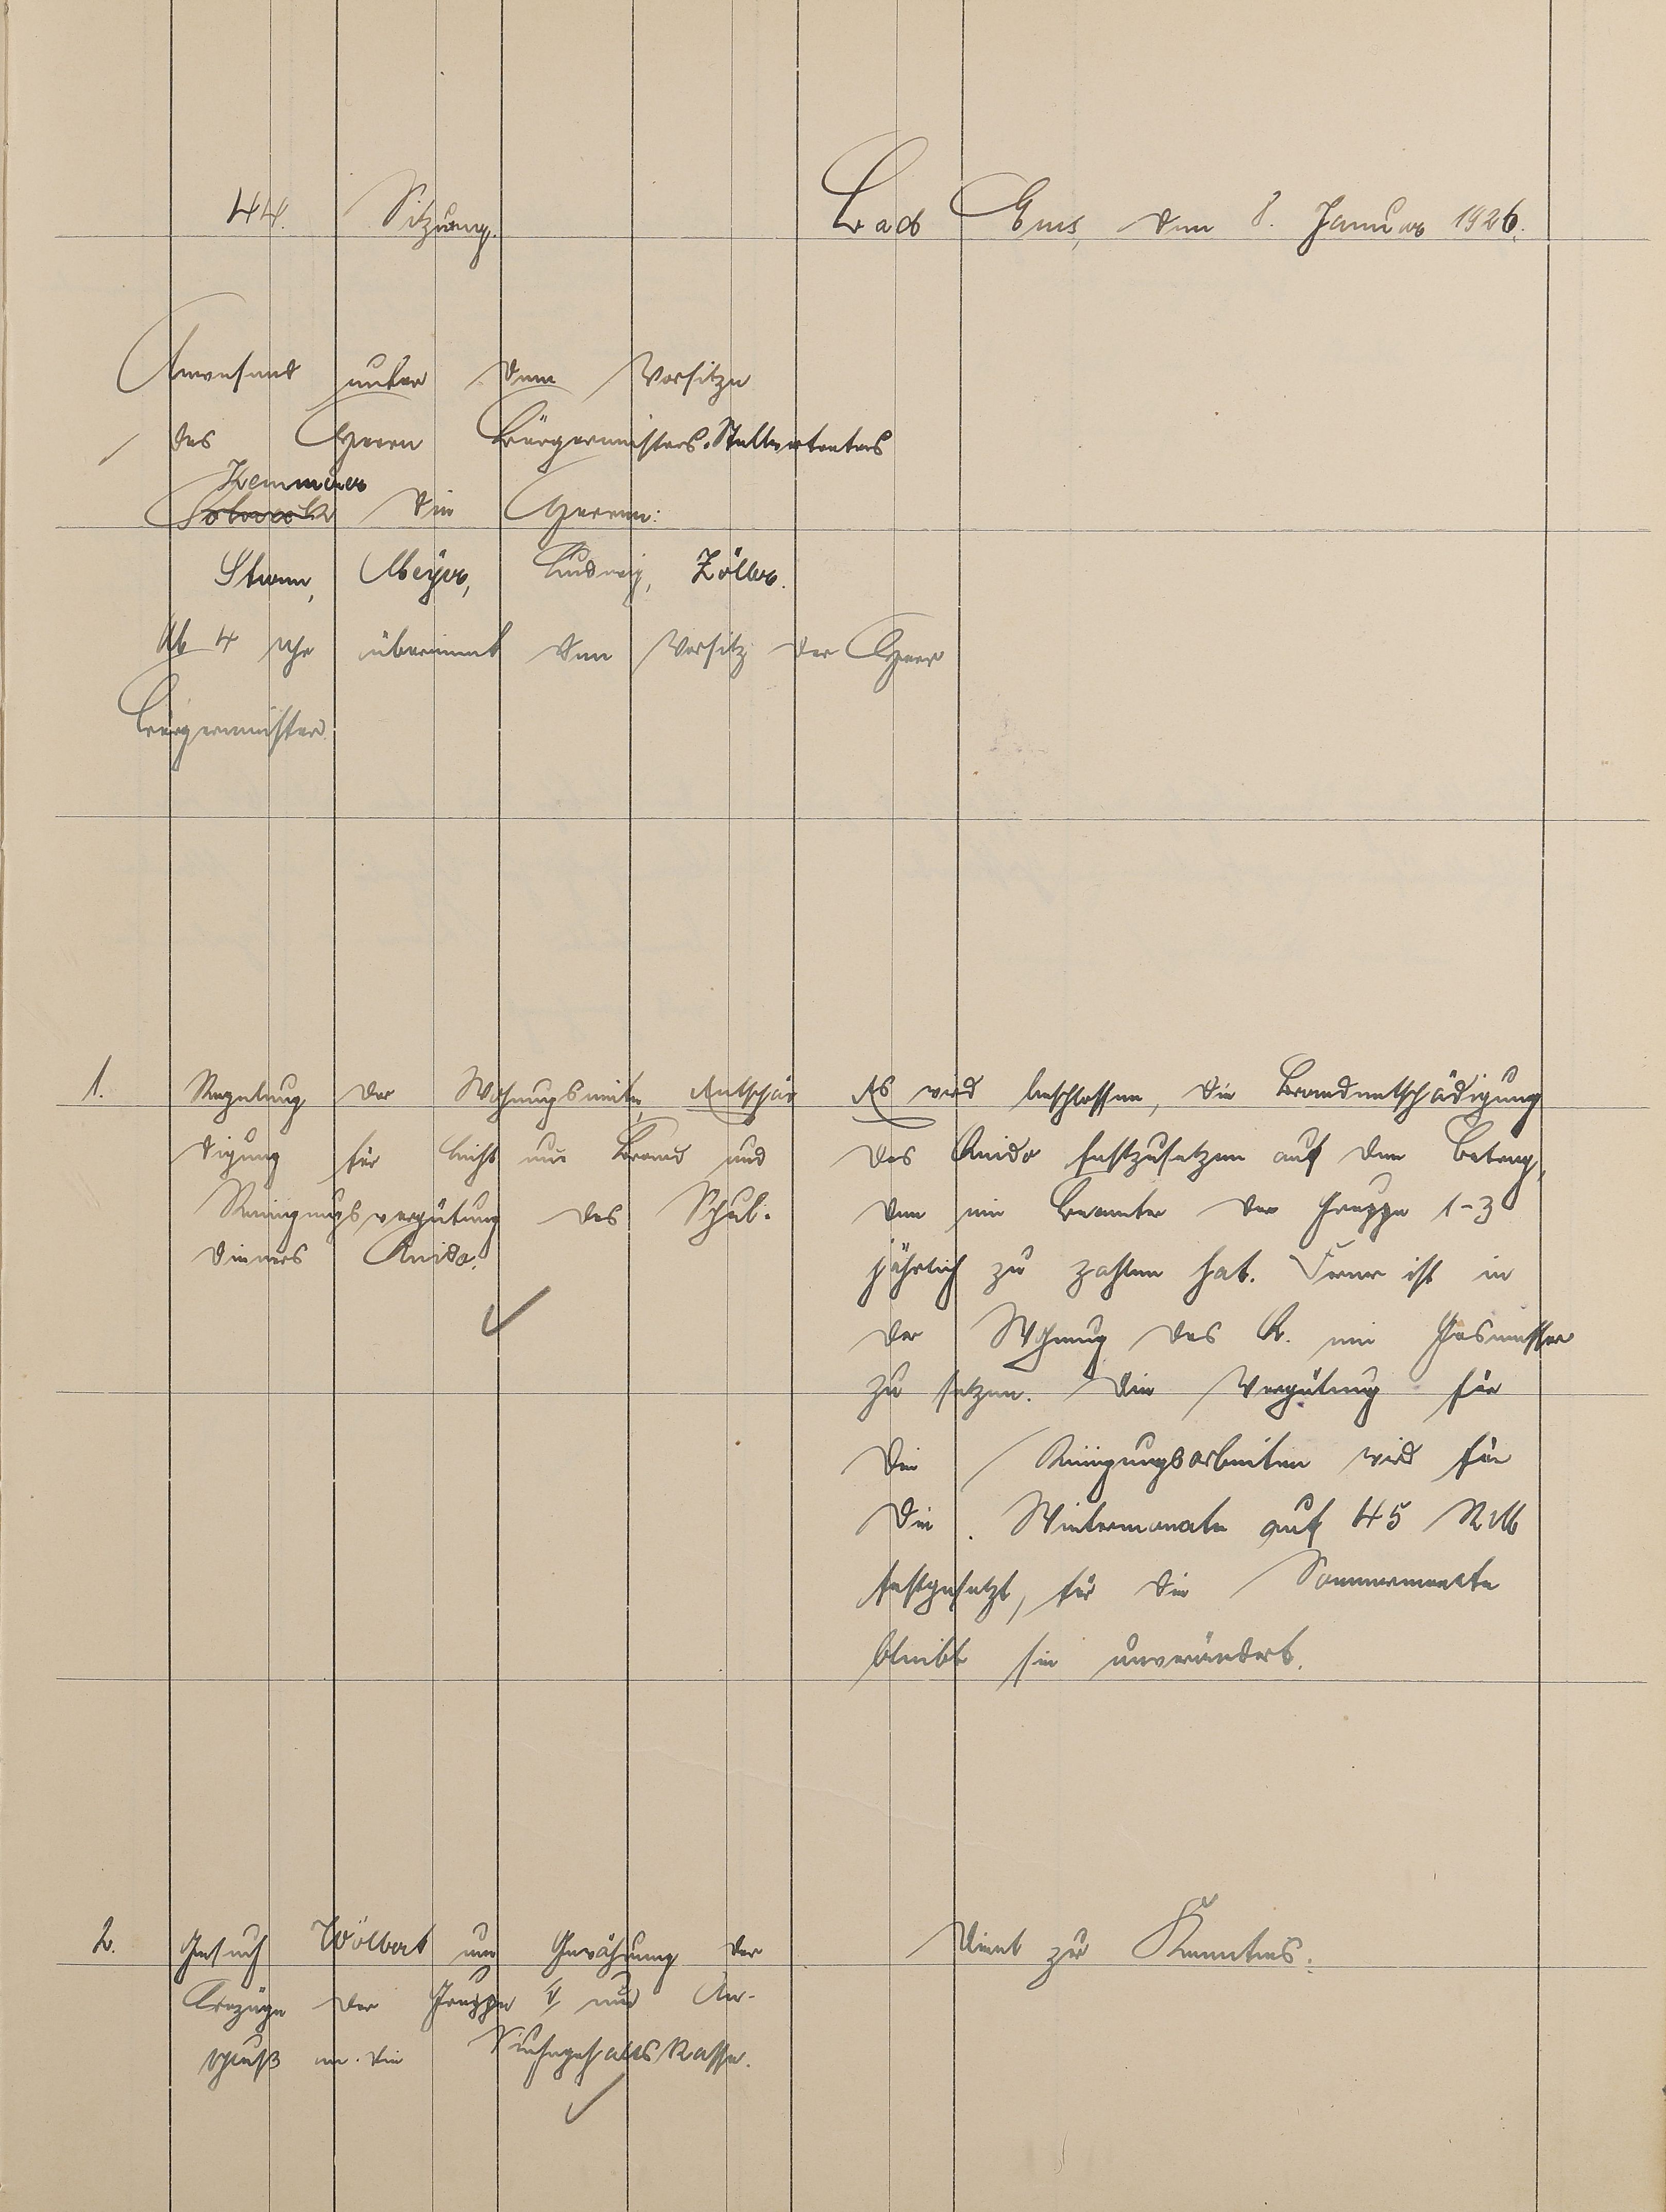 44. Sitzung.
Bad Ems, den 8. Januar 1926.
Anwesend unter dem Vorsitze
des Herrn Bürgermeisters-Stellvertreters
Kemmer
die Herren:
Sturm, Meyer, Ludwig, Zöller.
Ab 4 Uhr übernimmt den Vorsitz der Herr
Bürgermeister.
1. Regelung der Wohnungsmiete, Entschä-
digung für Licht und Brand und
Reinigungsvergütung des Schul-
dieners
Es wird beschlossen, die Brandentschädigung
des festzusetzen auf den Betrag,
den ein Beamter der Gruppe 1-3
jährlich zu zahlen hat. Ferner ist in
der Wohnung des K. ein Gasmesser
zu setzen. Die Vergütung für
die Reinigungsarbeiten wird für
die Wintermonate auf 45 RM
festgesetzt, für die Sommermonate
bleibt sie unverändert.
2. Gesuch Wölbert um Gewährung der
Bezüge der Gruppe V und An-
schluß an die Ruhegehaltskasse.
Dient zur Kenntnis.